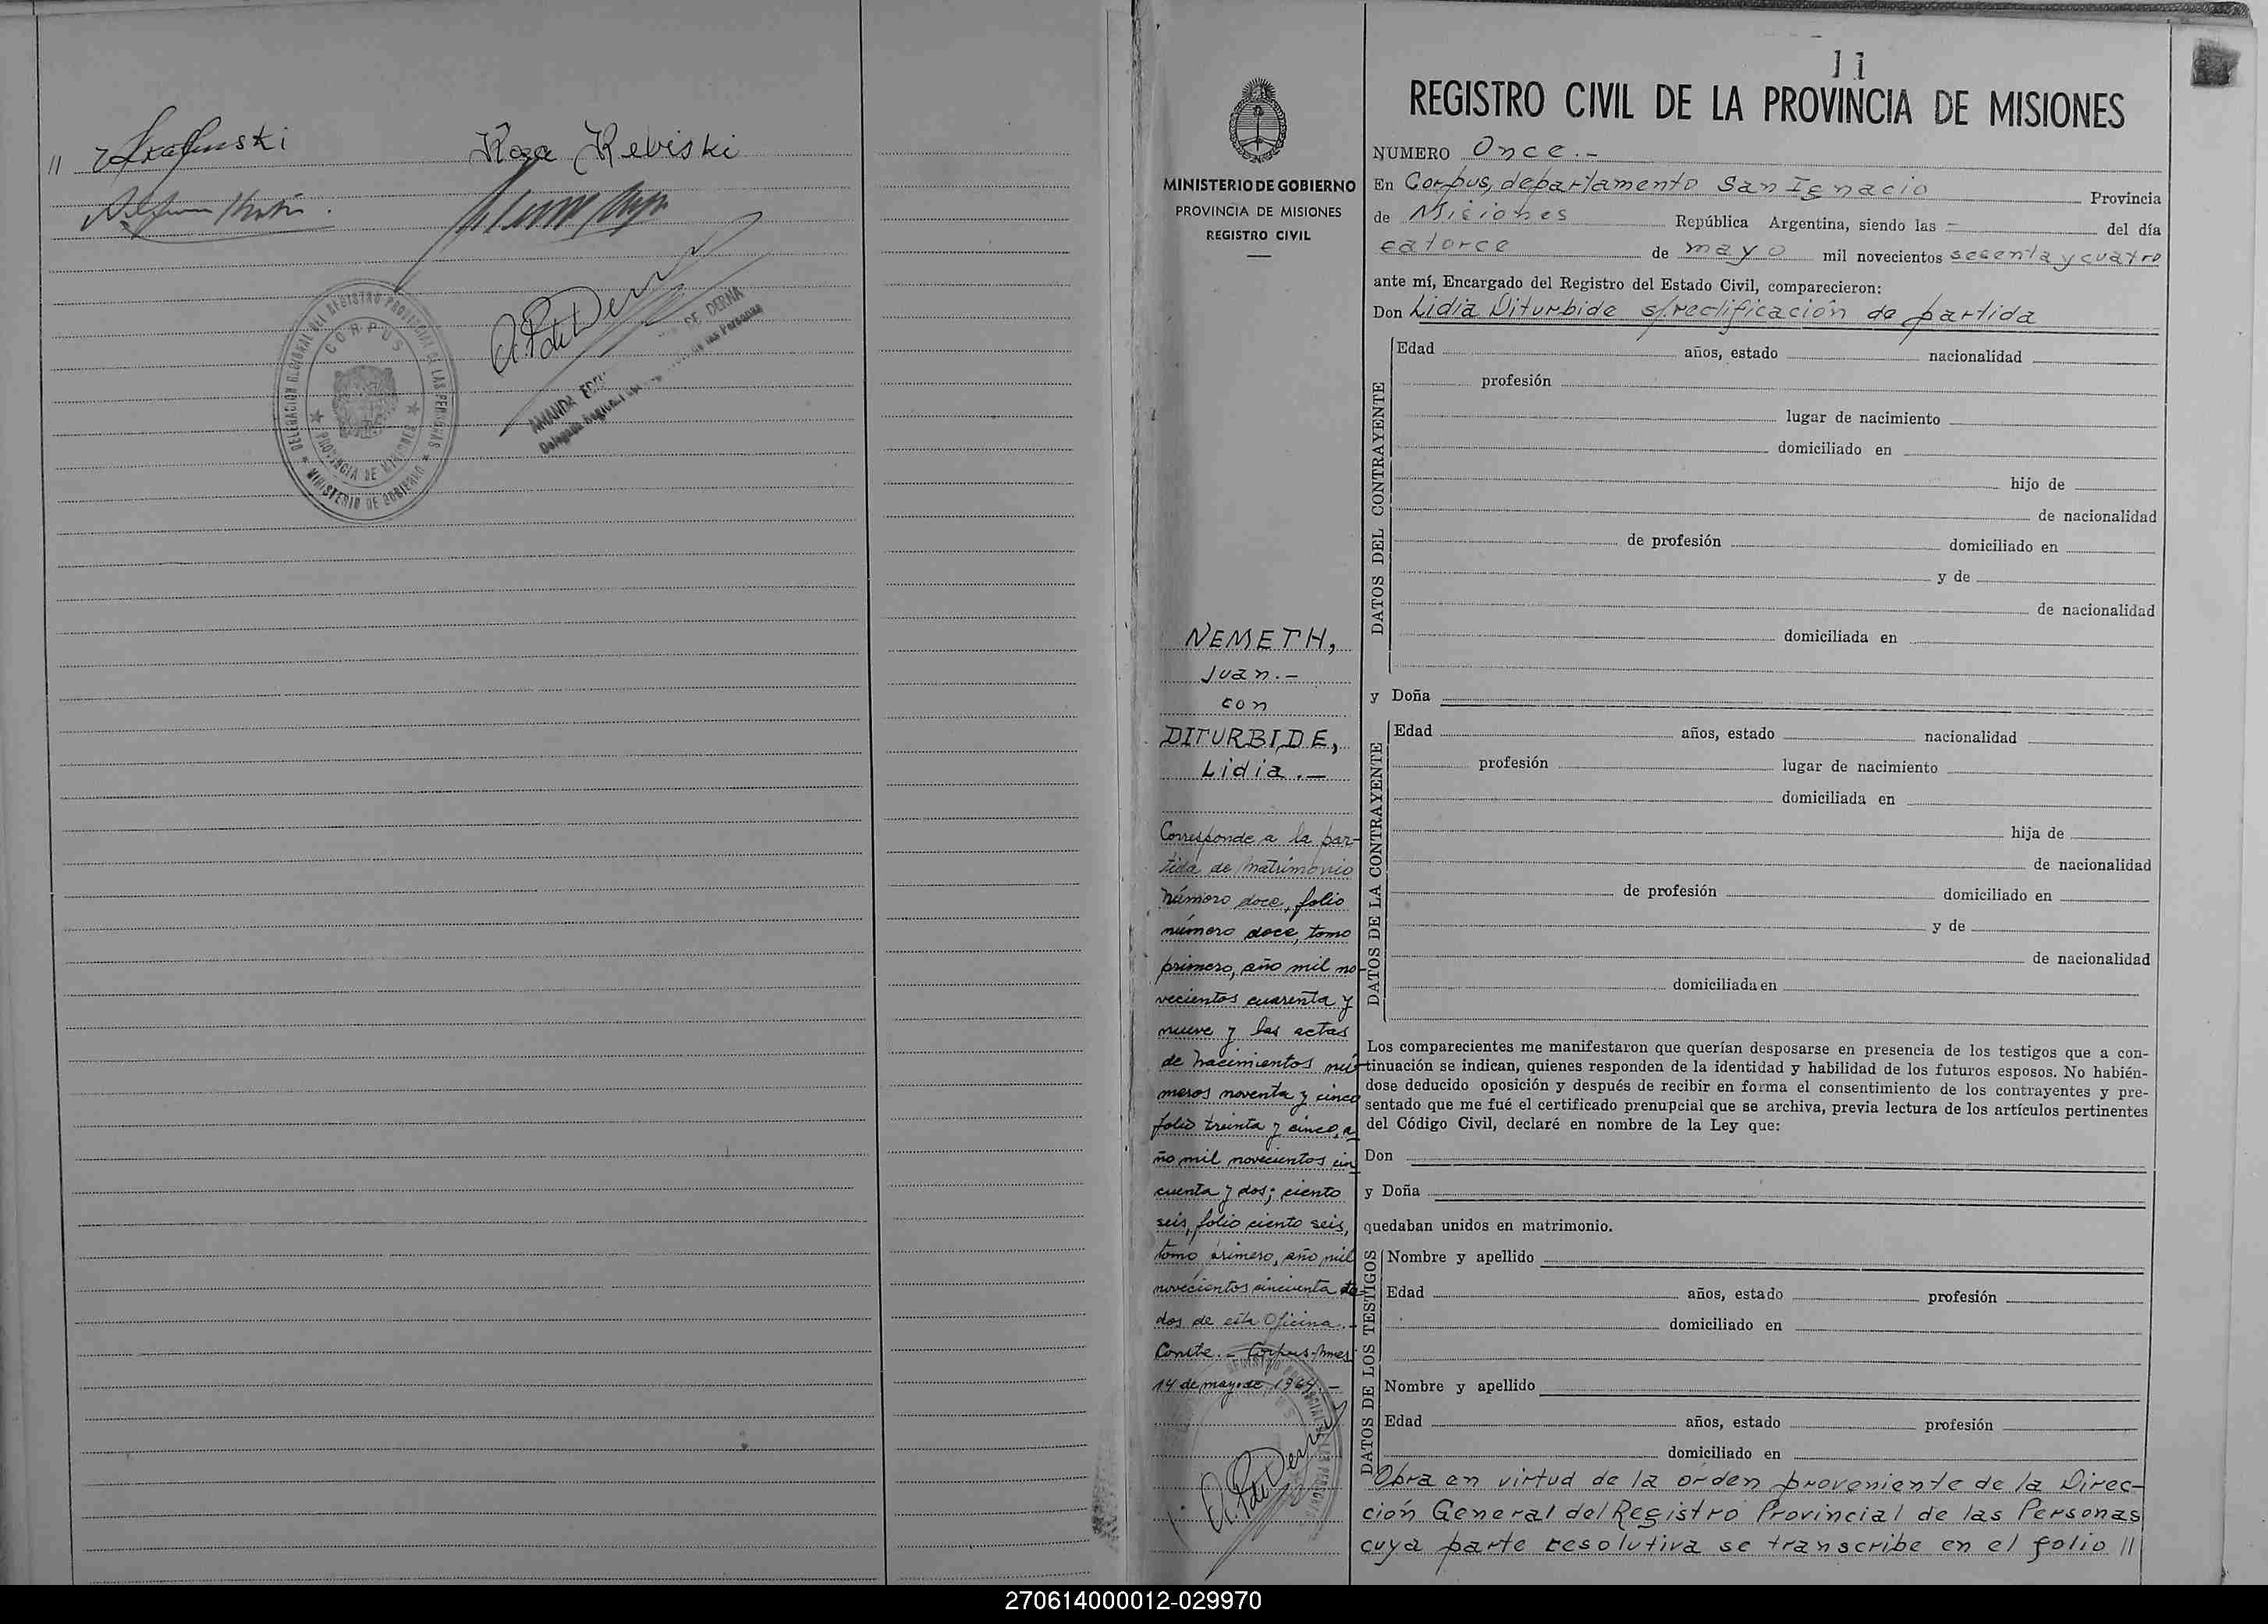 Rosa Kebiski
DELEGACION REGIONAL DEL REGISTRO PROVINCIAL DE LAS PERSONAS
CORPUS
PROVINCIA DE MISIONES
MINISTERIO DE GOBIERNO
AMANDA
DE DERNA
de las Personas
MINISTERIO DE GOBIERNO
PROVINCIA DE MISIONES
REGISTRO CIVIL
NEMETH,
Juan.-
con
DITURBIDE,
Lidia.-
Corresponde a la par-
tida de matrimonio
número doce, folio
número doce, tomo
primero, año mil no-
vecientos cuarenta y
nueve y las actas
de nacimientos nú-
meros noventa y cinco
folio treinta y cinco, a
ño mil novecientos cin
cuenta y dos; ciento
seis, folio ciento seis,
tomo primero, año mil
novecientos cincuenta
dos de esta Oficina.-
Conste.- Corpus-Mnes
14 de mayo de 1964.-
11
REGISTRO CIVIL DE LA PROVINCIA DE MISIONES
NUMERO Once.-
En Corpus, departamento San Ignacio Provincia
de Misiones República Argentina, siendo las - del día
catorce de mayo mil novecientos sesenta y cuatro
ante mí, Encargado del Registro del Estado Civil, comparecieron:
Don Lidia Diturbide s/rectificación de partida
DATOS DEL CONTRAYENTE
Edad años, estado nacionalidad
profesión
lugar de nacimiento
domiciliado en
hijo de
de nacionalidad
de profesión domiciliado en
y de
de nacionalidad
domiciliada en
y Doña
DATOS DE LA CONTRAYENTE
Edad años, estado nacionalidad
profesión lugar de nacimiento
domiciliada en
hija de
de nacionalidad
de profesión domiciliado en
y de
de nacionalidad
domiciliada en
Los comparecientes me manifestaron que querían desposarse en presencia de los testigos que a con-
tinuación se indican, quienes responden de la identidad y habilidad de los futuros esposos. No habién-
dose deducido oposición y después de recibir en forma el consentimiento de los contrayentes y pre-
sentado que me fué el certificado prenupcial que se archiva, previa lectura de los artículos pertinentes
del Código Civil, declaré en nombre de la Ley que:
Don
y Doña
quedaban unidos en matrimonio.
DATOS DE LOS TESTIGOS
Nombre y apellido
Edad años, estado profesión
domiciliado en
Nombre y apellido
Edad años, estado profesión
domiciliado en
Obra en virtud de la orden proveniente de la Direc-
ción General del Registro Provincial de las Personas
cuya parte resolutiva se transcribe en el folio //
270614000012-029970